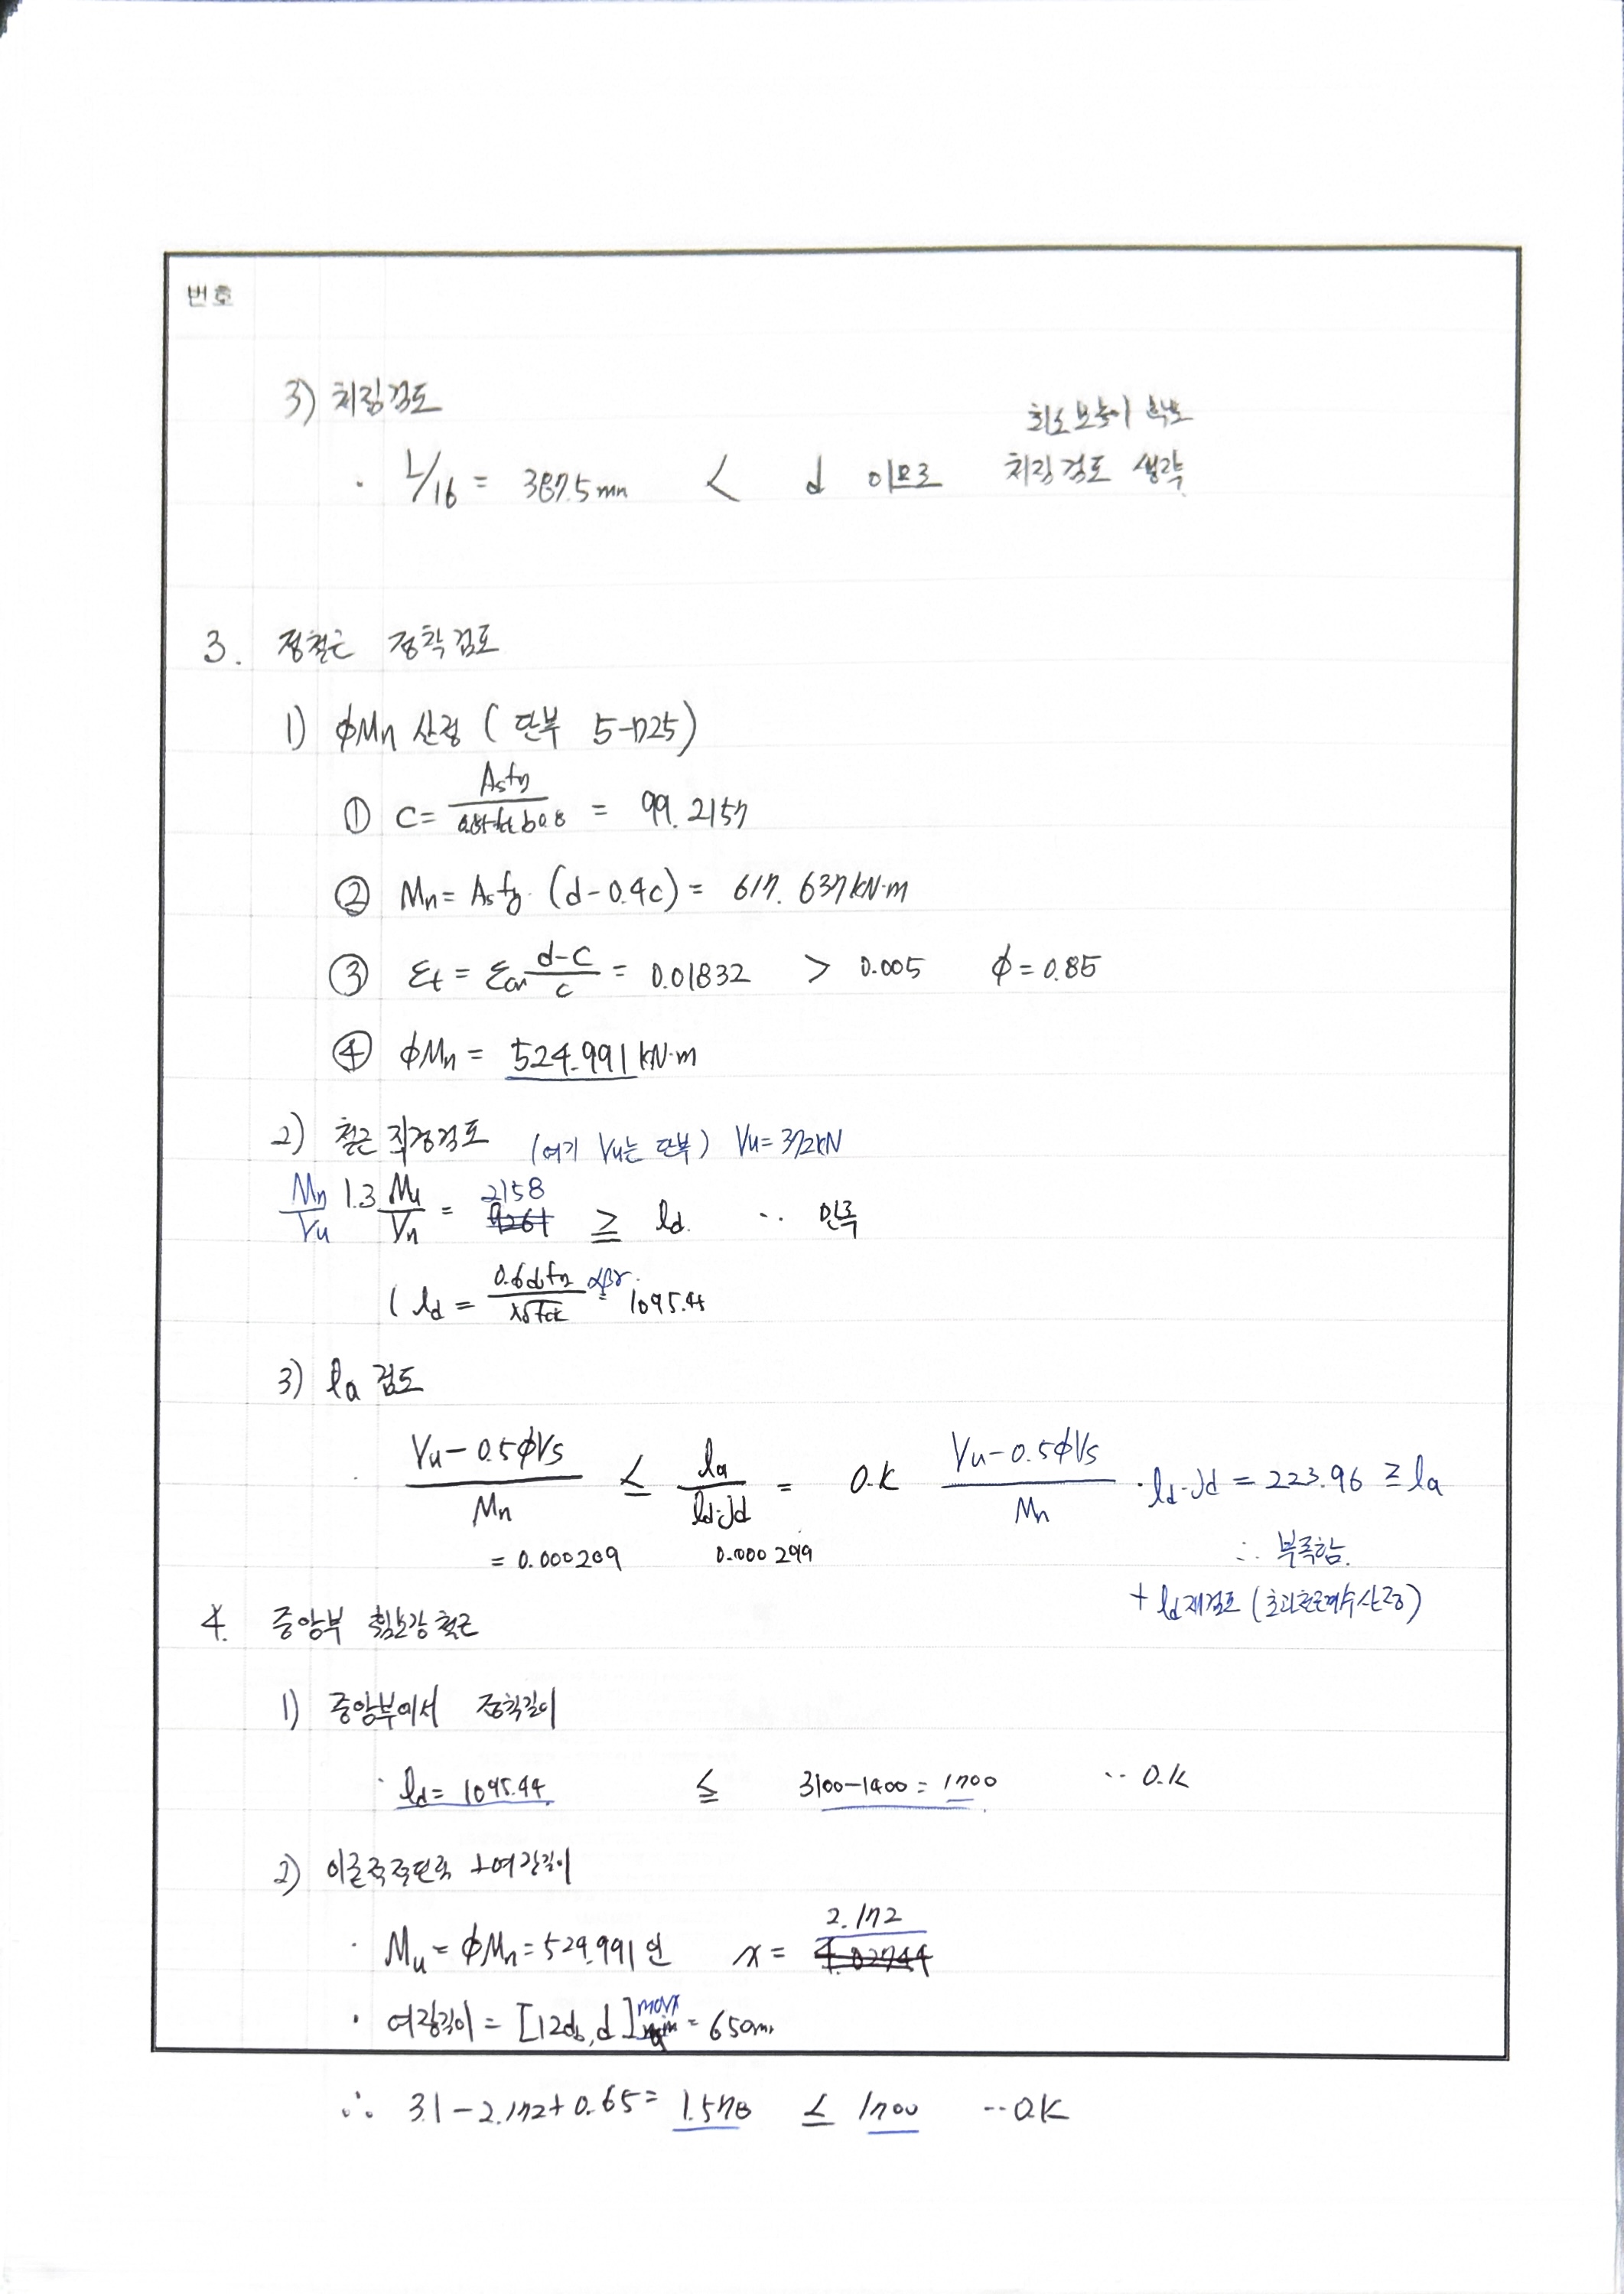 번호
3) 처짐검토
최소보높이 확보
· L/16 = 387.5mm < d 이므로 처짐검토 생략
3. 정철근 정착검토
1) ϕMn 산정 ( 단부 5-D25)
① C = Asfy / 0.85fck b 0.8 = 99.2157
② Mn = Asfy · (d-0.4c) = 617.637 kN·m
③ εt = εcu (d-c)/c = 0.01832 > 0.005 ϕ = 0.85
④ ϕMn = 524.991 kN·m
2) 철근 직경검토 (여기 Vu는 단부) Vu = 372kN
Mn/Vu 1.3 Mn/Vn = 2158 ≥ ld ∴ 만족
( ld = 0.6dbfy / λ√fck αβγ = 1095.44
3) la 검토
(Vu - 0.5ϕVs) / Mn ≤ la / ld·jd = O.K (Vu - 0.5ϕVs) / Mn · ld·jd = 223.96 ≥ la
= 0.000209 0.000299 ∴ 부족함.
+ ld 재검토 (초과철근계수 산정)
4. 중앙부 휨보강 철근
1) 중앙부에서 정착길이
· ld = 1095.44 ≤ 3100-1400 = 1700 ∴ O.K
2) 이론적 절단점 + 여장길이
· Mu = ϕMn = 524.991 인 x = 2.172
· 여장길이 = [12db, d]max = 650mm
∴ 3.1 - 2.172 + 0.65 = 1.578 ≤ 1700 ∴ O.K